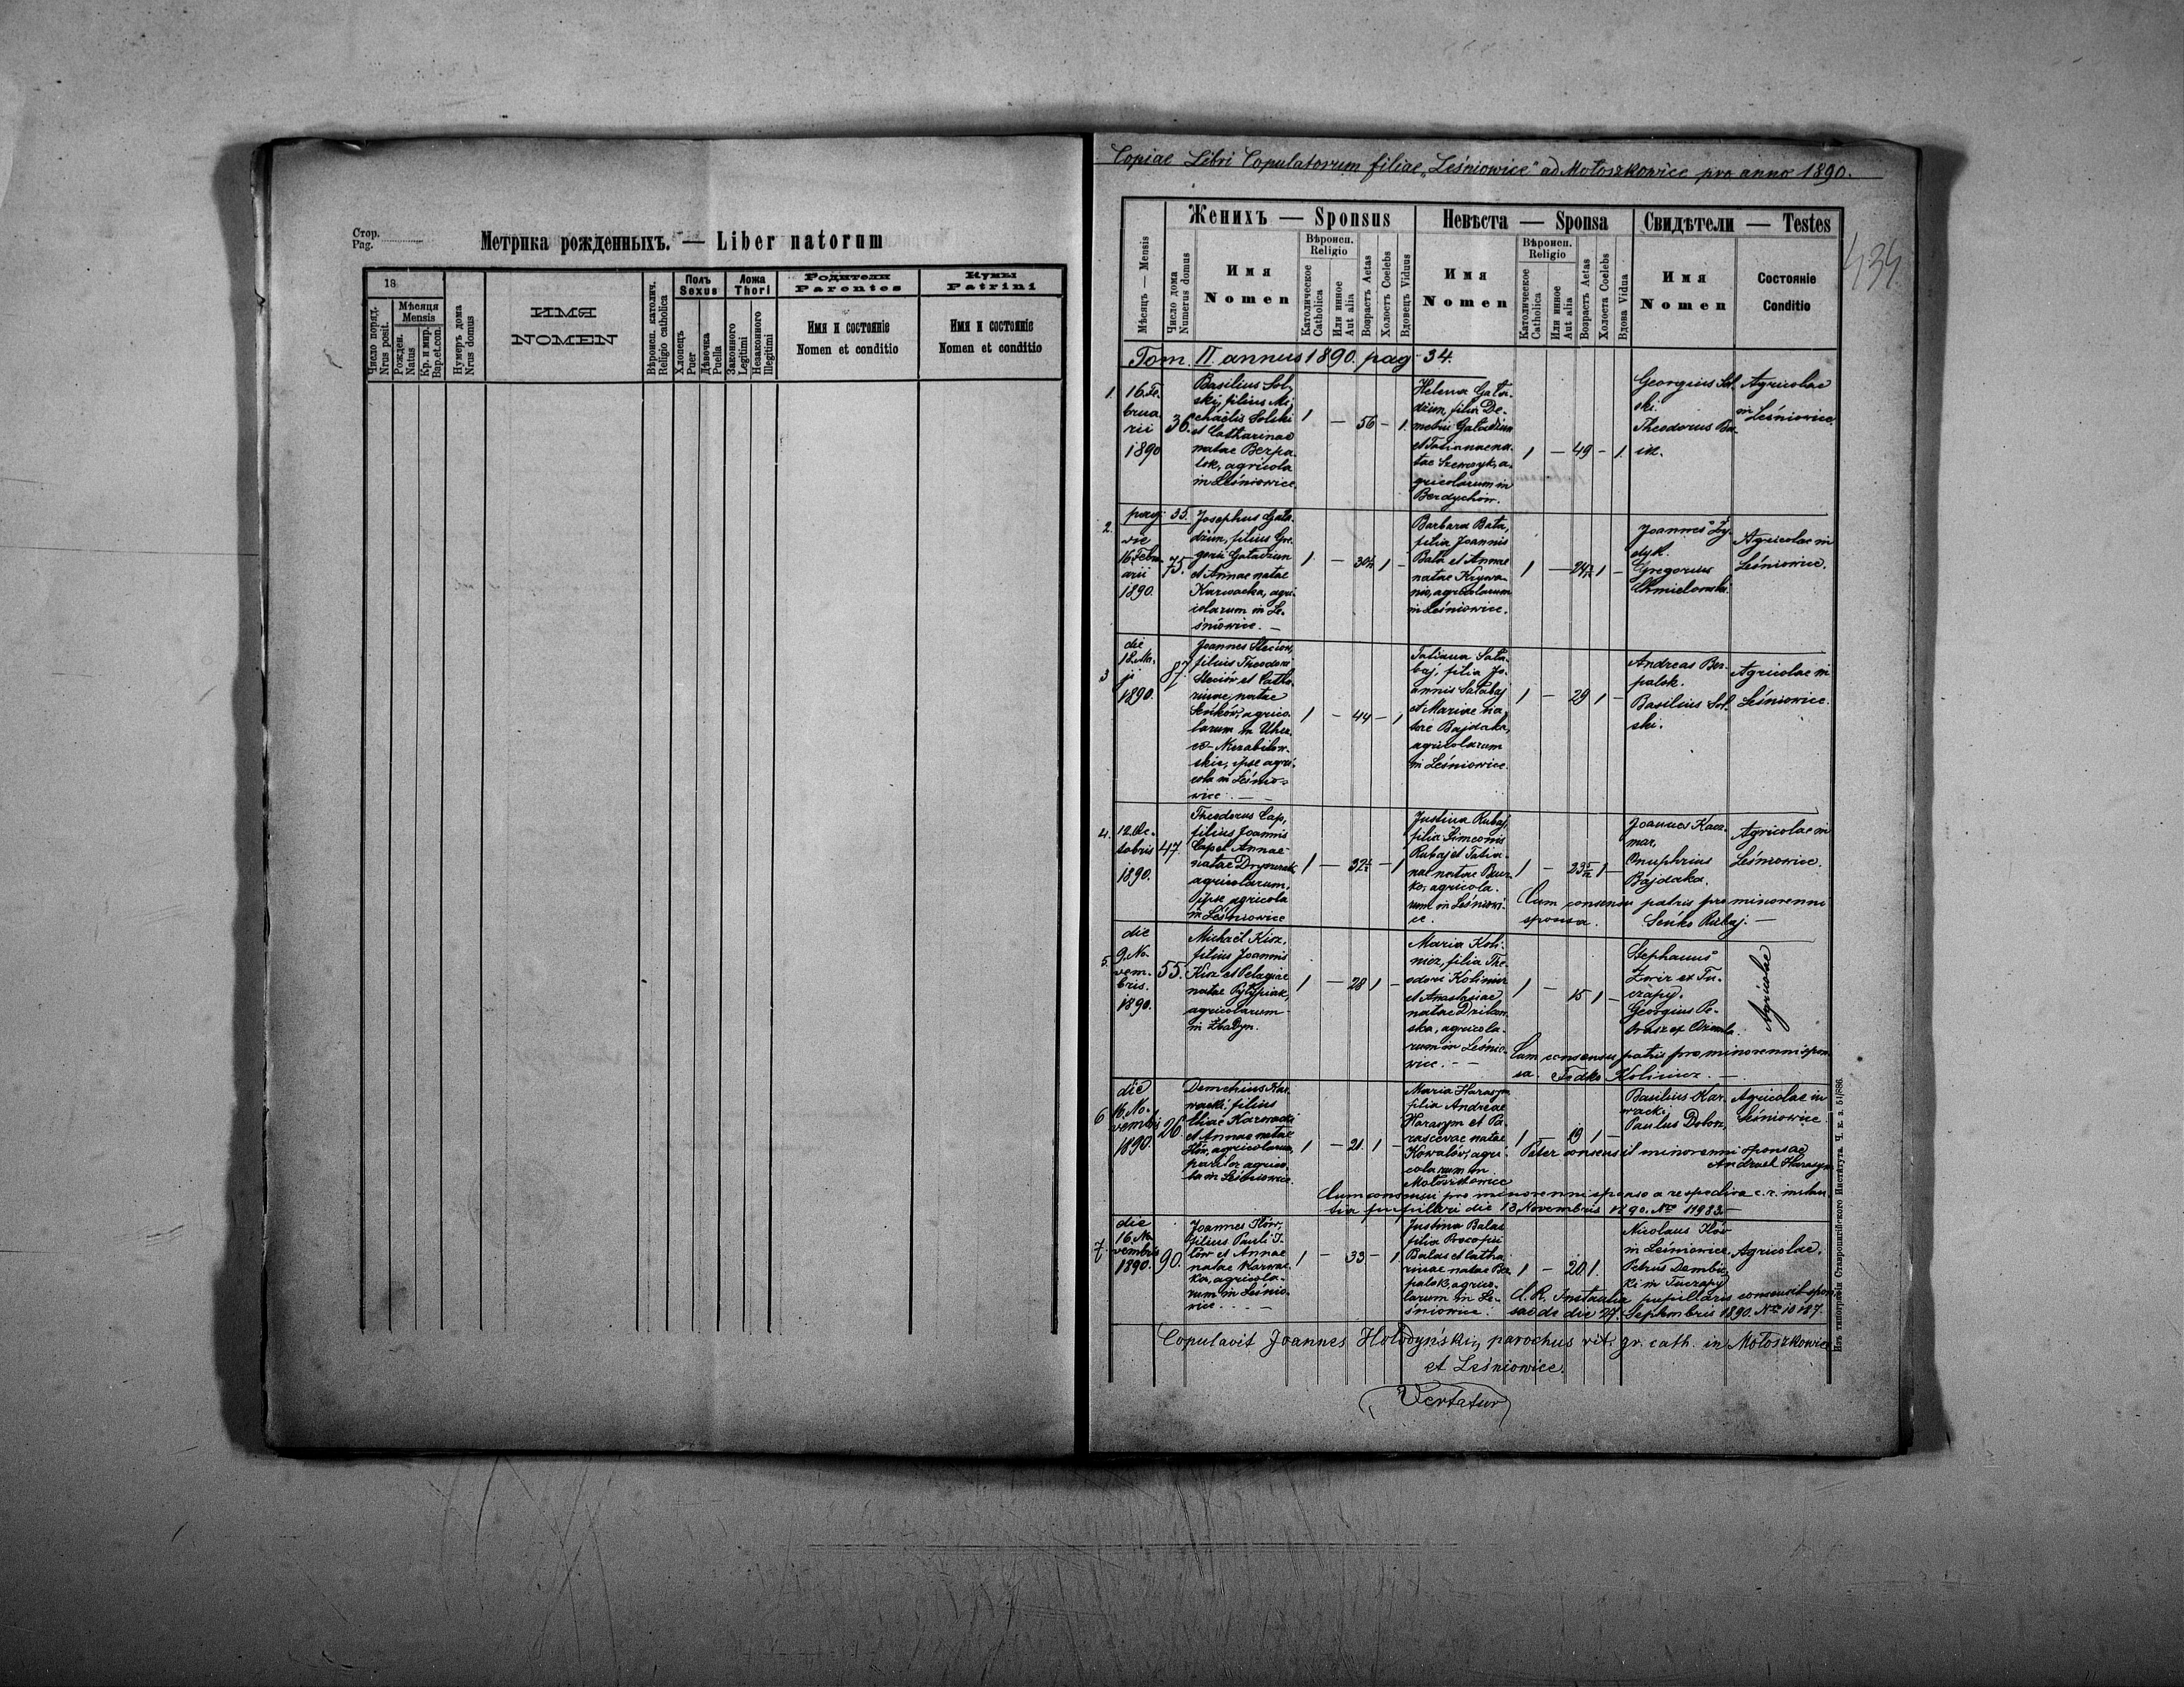 Стор.
Pag.
Метрика рожденныхъ. — Liber natorum
18
Число поряд.
Nrus posit.
Мѣсяця
Mensis
Рожден.
Natus
Кр. и мир.
Bap. et con.
Нумеръ дома
Nrus domus
ИМЯ
NOMEN
Вѣроисп. католич.
Religio catholica
Полъ
Sexus
Хлопецъ
Puer
Дѣвочка
Puella
Ложа
Thori
Законного
Legitimi
Незаконного
Illegitimi
Родители
Parentes
Имя и состоянiе
Nomen et conditio
Кумы
Patrini
Имя и состоянiе
Nomen et conditio
Copiae Libri Copulatorum filiae „Leśniowice" ad Mołoszkowice pro anno 1890.
434.
Мѣсяцъ — Mensis
Число дома
Numerus domus
Женихъ — Sponsus
Имя
Nomen
Вѣроисп.
Religio
Католическое
Catholica
Или инное
Aut alia
Возрастъ Aetas
Холостъ Coelebs
Вдовецъ Viduus
Невѣста — Sponsa
Имя
Nomen
Вѣроисп.
Religio
Католическое
Catholica
Или инное
Aut alia
Возрастъ Aetas
Холоста Coelebs
Вдова Vidua
Свидѣтели — Testes
Имя
Nomen
Состоянiе
Conditio
Tom. II. annus 1890. pag. 34.
1.
16. Fe-
brua
rii
1890
36.
Basilius Sol
ski, filius Mi
chaëlis Solski
et Catharinae
natae Berpa
lok, agricola
in Leśniowice.
1 — 56 — 1.
Helena Gała-
dzun, filia De-
metrii Gaładzun
et Tatianae na-
tae Szewczyk, a-
gricolarum in
Berdychów.
1 — 49 — 1.
Georgius Sol
ski.
Theodorus
Agricolae
in Leśniowice.
2.
pag. 35.
die
16. Febru
arii
1890.
75.
Josephus Gała-
dzun, filius Gre
gorii Gaładzun
et Annae natae
Karwacka, agri-
colarum in Le-
śniowice. —
1 — 1 —
Barbara Bata,
filia Joannis
Bata et Annae
natae
agricolarum
in Leśniowice.
1 — 1 —
Joannes
Gregorius
Chmielowski.
Agricolae in
Leśniowice.
3
die
18. Ma-
ji
1890.
87.
Joannes Steciów,
filius Theodori
Steciów et Catha-
rinae, natae
Seńków, agrico-
larum in Uher-
ce-Niezabitow-
skie, ipse agri-
cola in Leśnio-
wice. —
1 — 44 — 1
Tatiana Sała-
baj, filia Jo-
annis Sałabaj
et Mariae na-
tae Bajdaka,
agricolarum
in Leśniowice.
1 — 29 1 —
Andreas Ber-
palok.
Basilius Sol-
ski.
Agricolae in
Leśniowice.
4.
12. Oc-
tobris
1890.
47.
Theodorus Cap,
filius Joannis
Cap et Annae
natae
agricolarum.
Ipse agricola
in Leśniowice
1 — — 1
Justina Rubaj,
filia Simeonis
Rubaj et Tatia-
nae natae
agricola-
rum in Leśniowi-
ce.
1 — 1 —
Joannes Kacz-
mar,
Onuphrius
Bajdaka.
Agricolae in
Leśniowice.
Cum consensu patris pro minorenni
sponsa. Seńko Rubaj. —
5.
die
9. No-
vem-
bris.
1890.
55.
Michaël Kisz,
filius Joannis
Kisz et Pelagiae
natae Pyłypiak,
agricolarum
in
1 — 28 1 —
Maria Koli-
nicz, filia The-
odori Kolinicz
et Anastasiae
natae
agricola-
rum in Leśnio-
wice. —
1 — 15 1 —
Stephanus
Zwir ex Tu-
czapy.
Georgius Pe-
trasz ex
Agricolae
Cum consensu patris pro minorenni spon
sa. Fedko Kolinicz. —
6
die
16. No-
vembris
1890
26
Demetrius Kar-
wacki filius
Eliae Karwacki
et Annae natae
Iłów, agricolarum,
pariter agrico-
la in Leśniowice.
1 — 21. 1 —
Maria Harasym
filia Andreae
Harasym et Pa-
rascevae natae
Kowalów, agri-
colarum in
Mołoszkowice
1 — 19 1 —
Basilius Kar-
wacki,
Paulus
Agricolae in
Leśniowice
Pater consensit minorenni sponsae
Andruch Harasym
Cum consensu pro minorenni sponso a respectiva c. r. instan-
tia pupillari die 13. Novembris 1890. Nro 11983. —
7.
die
16. No
vembris
1890.
90.
Joannes Iłów,
filius Pauli I-
łów et Annae
natae Karwac-
ka, agricola-
rum in Leśnio-
wice. —
1 — 33 — 1
Justina Balas
filia Procopii
Balas et Catha-
rinae natae Ber
palok, agrico-
larum in Le-
śniowice.
1 — 20 1.
Nicolaus Iłów
in Leśniowice.
Petrus Dembic
ki in Tuczapy
Agricolae.
C. R. Instantia pupillaris consensit spon
sae de die 27. Septembris 1890. Nro 10187.
Copulavit Joannes Hołodyński, parochus rit. gr. cath. in Mołoszkowice
et Leśniowice.
Vertatur
Изъ типографiи Ставропигiйского Института. Ч. к. з. 51/886.